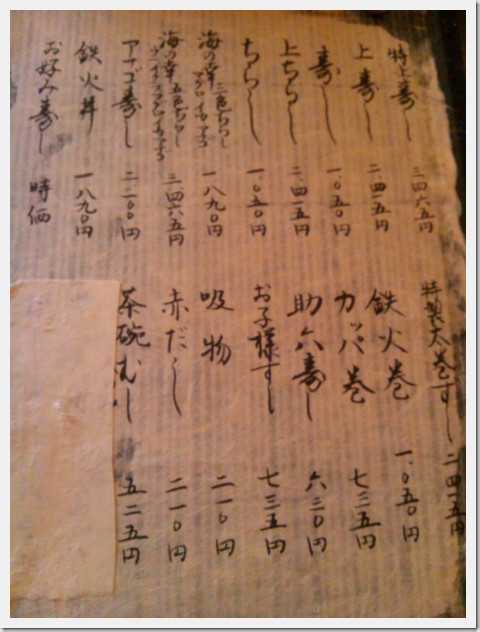 特上寿し 三、四六五円
上寿し 二、四一五円
寿し 一、〇五〇円
上ちらし 二、四一五円
ちらし 一、〇五〇円
海の幸 三色ちらし 一、八九〇円
海の幸 五色ちらし 三、四六五円
アナゴ寿し 二、一〇〇円
鉄火丼 一、八九〇円
お好み寿し 時価
特製太巻すし 二、四一五円
鉄火巻 一、〇五〇円
カッパ巻 七三五円
助六寿し 六三〇円
お子様すし 七三五円
吸物 二一〇円
赤だし 二一〇円
茶碗むし 五二五円